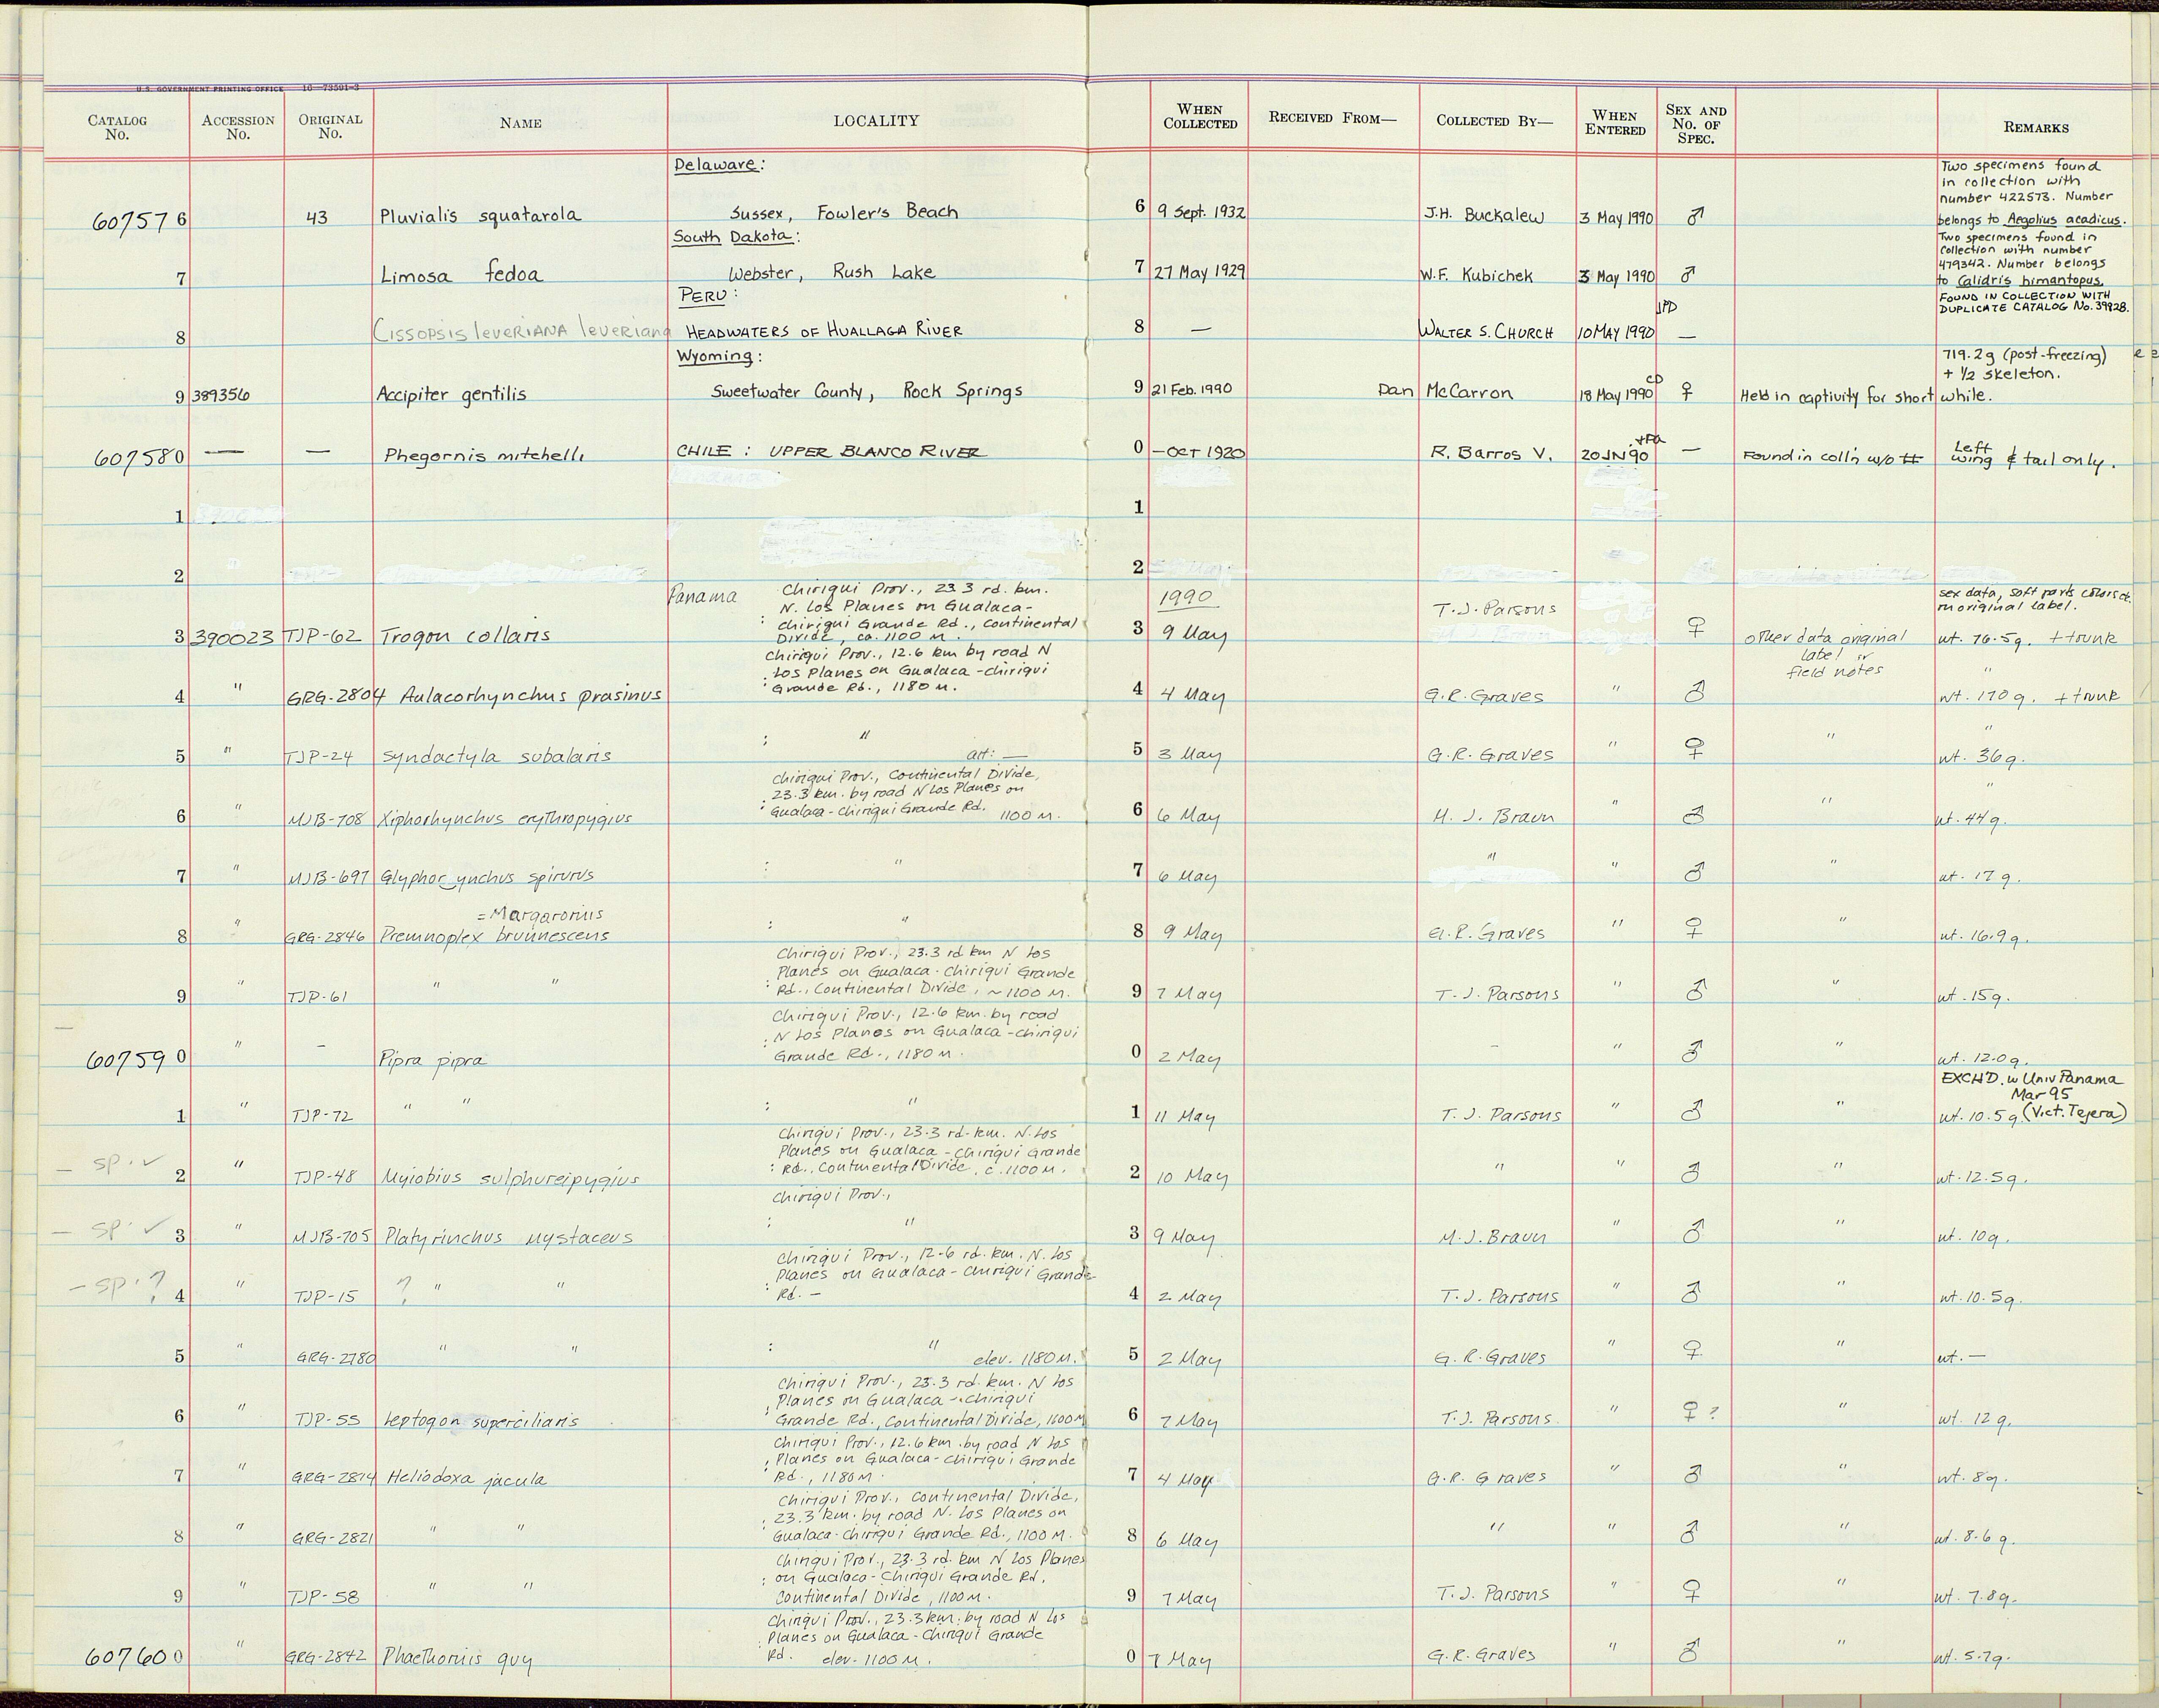 U.S. GOVERNMENT PRINTING OFFICE 16—73501-3
CATALOG No. ACCESSION No. ORIGINAL No. NAME LOCALITY WHEN COLLECTED RECEIVED FROM— COLLECTED BY— WHEN ENTERED SEX AND No. OF SPEC. REMARKS
Delaware:
Two specimens found
in collection with
number 422573. Number
607576 43 Pluvialis squatarola Sussex, Fowler's Beach 6 9 Sept. 1932 J.H. Buckalew 3 May 1990 ♂ belongs to Aegolius acadicus.
South Dakota:
Two specimens found in
collection with number
479342. Number belongs
7 Limosa fedoa Webster, Rush Lake 7 27 May 1929 W.F. Kubichek 3 May 1990 ♂ to Calidris himantopus.
PERU:
FOUND IN COLLECTION WITH
DUPLICATE CATALOG No. 39828.
8 Cissopsis leveriana leveriana HEADWATERS OF HUALLAGA RIVER 8 — WALTER S. CHURCH 10 MAY 1990 JPD —
Wyoming:
719.2g (post-freezing)
+ 1/2 skeleton.
9 389356 Accipiter gentilis Sweetwater County, Rock Springs 9 21 Feb. 1990 Dan McCarron 18 May 1990 CD ♀ Held in captivity for short while.
607580 — — Phegornis mitchelli CHILE: UPPER BLANCO RIVER 0 —OCT 1920 R. Barros V. 20 JN 90 — Found in coll'n w/o # Left wing & tail only.
1 1
2 2
Panama Chiriqui Prov., 23.3 rd. km.
N. Los Planes on Gualaca-
: Chiriqui Grande Rd., Continental
Divide, ca. 1100 m.
1990
sex data, soft parts colors
on original label.
3 390023 TJP-62 Trogon collaris 3 9 May T.J. Parsons ♀ other data original label or field notes wt. 76.5g. + trunk
Chiriqui Prov., 12.6 km by road N
: Los Planes on Gualaca-Chiriqui
Grande Rd., 1180 m.
4 " GRG-2804 Aulacorhynchus prasinus 4 4 May G.R. Graves " ♂ " wt. 170g. + trunk
5 " TJP-24 Syndactyla subalaris : " alt: — 5 3 May G.R. Graves " ♀ " " wt. 36g.
Chiriqui Prov., Continental Divide,
: 23.3 km. by road N Los Planes on
Gualaca-Chiriqui Grande Rd. 1100 m.
6 " MJB-708 Xiphorhynchus erythropygius 6 6 May M.J. Braun " ♂ " " wt. 44g.
7 " MJB-697 Glyphorynchus spirurus : " 7 6 May " " ♂ " wt. 17g.
= Margarornis
8 " GRG-2846 Premnoplex brunnescens : " 8 9 May G.R. Graves " ♀ " wt. 16.9g.
Chiriqui Prov., 23.3 rd km N Los
Planes on Gualaca-Chiriqui Grande
: Rd., Continental Divide, ~1100 m.
9 " TJP-61 " " 9 7 May T.J. Parsons " ♂ " wt. 15g.
Chiriqui Prov., 12.6 km. by road
: N Los Planes on Gualaca-Chiriqui
Grande Rd., 1180 m.
607590 " – Pipra pipra 0 2 May – " ♂ " wt. 12.0g.
EXCH'D. w Univ Panama
Mar 95
1 " TJP-72 " " : " 1 11 May T.J. Parsons " ♂ " wt. 10.5g. (Vict. Tejera)
Chiriqui Prov., 23.3 rd. km. N. Los
Planes on Gualaca-Chiriqui Grande
: Rd., Continental Divide, c. 1100 m.
— sp. ✓ 2 " TJP-48 Myiobius sulphureipygius 2 10 May " " ♂ " wt. 12.5g.
Chiriqui Prov.,
— sp. ✓ 3 " MJB-705 Platyrinchus mystaceus : " 3 9 May M.J. Braun " ♂ " wt. 10g.
Chiriqui Prov., 12.6 rd. km. N. Los
Planes on Gualaca-Chiriqui Grande
: Rd. —
— sp. ? 4 " TJP-15 ? " " 4 2 May T.J. Parsons " ♂ " wt. 10.5g.
5 " GRG-2780 " " : " elev. 1180 m. 5 2 May G.R. Graves " ♀ " wt. —
Chiriqui Prov., 23.3 rd. km. N Los
: Planes on Gualaca-Chiriqui
Grande Rd., Continental Divide, 1100 m
6 " TJP-55 Leptogon superciliaris 6 7 May T.J. Parsons " ♀? " wt. 12g.
Chiriqui Prov., 12.6 km. by road N Los
: Planes on Gualaca-Chiriqui Grande
Rd., 1180 m.
7 " GRG-2814 Heliodoxa jacula 7 4 May G.R. Graves " ♂ " wt. 8g.
Chiriqui Prov., Continental Divide,
: 23.3 km. by road N. Los Planes on
Gualaca-Chiriqui Grande Rd., 1100 m.
8 " GRG-2821 " " 8 6 May " " ♂ " wt. 8.6g.
Chiriqui Prov., 23.3 rd. km N Los Planes
: on Gualaca-Chiriqui Grande Rd.
Continental Divide, 1100 m.
9 " TJP-58 " " 9 7 May T.J. Parsons " ♀ " wt. 7.8g.
Chiriqui Prov., 23.3 km. by road N Los
: Planes on Gualaca-Chiriqui Grande
Rd. elev. 1100 m.
607600 " GRG-2842 Phaethornis guy 0 7 May G.R. Graves " ♂ " wt. 5.7g.